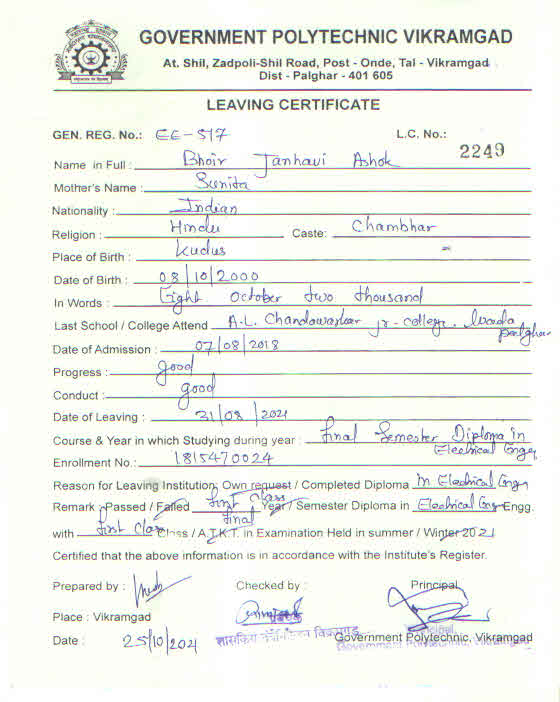 GOVERNMENT POLYTECHNIC VIKRAMGAD
At. Shil, Zadpoli-Shil Road, Post - Onde, Tal - Vikramgad
Dist - Palghar - 401 605
LEAVING CERTIFICATE
GEN. REG. No.: EE-517 L.C. No.: 2249
Name in Full : Bhoir Janhavi Ashok
Mother's Name : Sunita
Nationality : Indian
Religion : Hindu Caste: Chambhar
Place of Birth : Kudus
Date of Birth : 08/10/2000
In Words : Eight October two thousand
Last School / College Attend A.L. Chandawarkar jr-college. Wada palghar
Date of Admission : 07/08/2018
Progress : good
Conduct : good
Date of Leaving : 31/08/2021
Course & Year in which Studying during year : final Semester Diploma in
Electrical Engg
Enrollment No.: 1815470024
Reason for Leaving Institution: Own request / Completed Diploma in Electrical Engg
Remark : Passed / Failed first class final Year / Semester Diploma in Electrical Engg Engg.
with first Class Class / A.T.K.T. in Examination Held in summer / Winter 2021
Certified that the above information is in accordance with the Institute's Register.
Prepared by : Checked by : Principal
Place : Vikramgad
Date : 25/10/2021 Government Polytechnic, Vikramgad